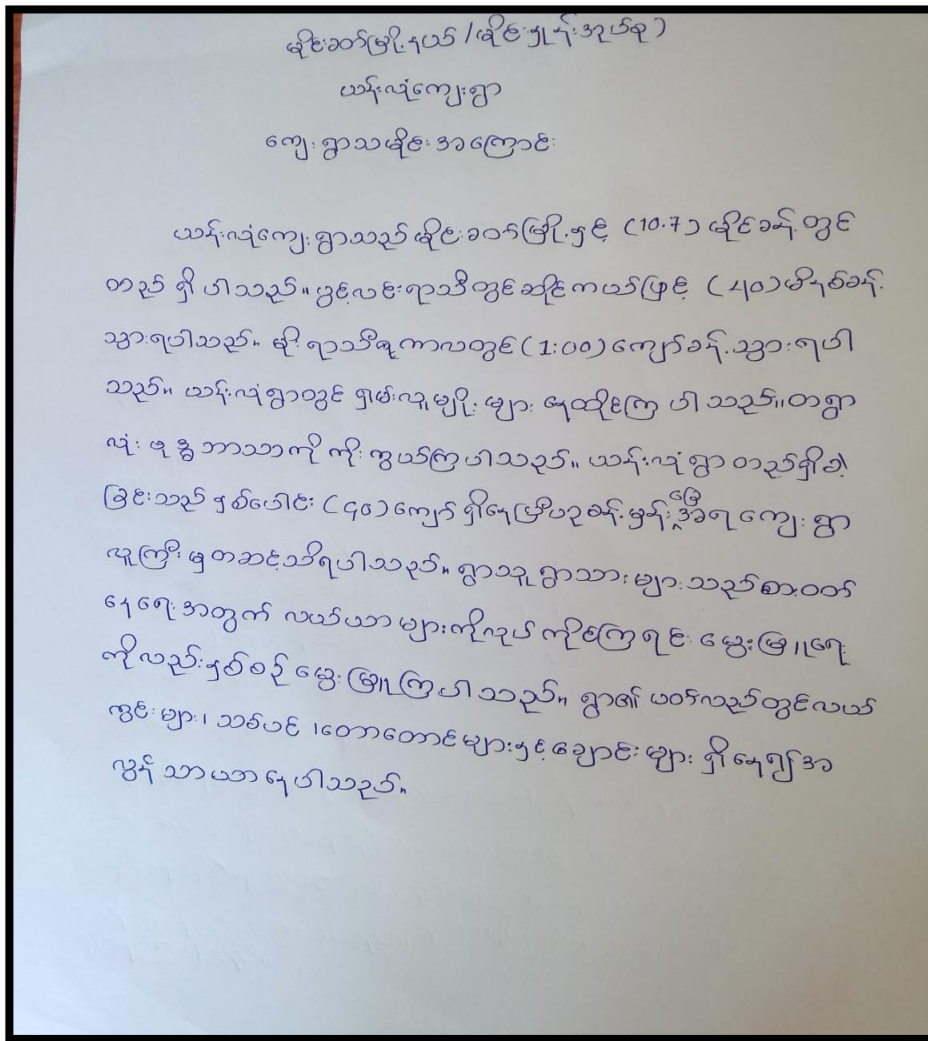 မိုင်းခတ်မြို့နယ် / မိုင်းရှုန်းအုပ်စု )
ယန်းလုံကျေးရွာ
ကျေးရွာသမိုင်းအကြောင်း
ယန်းလုံကျေးရွာသည် မိုင်းခတ်မြို့နှင့် (10.7) မိုင်ခန့်တွင်
တည် ရှိ ပါသည်။ ပွင့်လင်းရာသီတွင်ဆိုင်ကယ်ဖြင့် (၄၀)မိနစ်ခန့်
သွားရပါသည်။ မိုးရာသီဥတုကာလတွင် (1:00) ကျော်ခန့်သွားရပါ
သည်။ ယန်းလုံရွာတွင် ရှမ်းလူမျိုး များ နေထိုင်ကြ ပါ သည်။တရွာ
လုံး ဗုဒ္ဓ ဘာသာကို ကိုးကွယ်ကြပါသည်။ ယန်းလုံရွာ တည်ရှိခဲ့
ခြင်းသည် နှစ်ပေါင်း (၄၀) ကျော် ရှိနေပြီ ခန့်မှန်းခြေ အရ ကျေးရွာ
လူကြီး မှတဆင့်သိရပါသည်။ ရွာသူရွာသားများသည်စားဝတ်
နေရေးအတွက် လယ်ယာများကိုလုပ် ကိုင်ကြရင်း မွေးမြူရေး
ကိုလည်းနှစ်စဉ် မွေးမြူကြပါသည်။ ရွာ၏ ပတ်လည်တွင်လယ်
ကွင်းများ၊ သစ်ပင် ၊တောတောင်များနှင့်ချောင်းများ ရှိနေ၍အ
လွန် သာယာနေပါသည်။